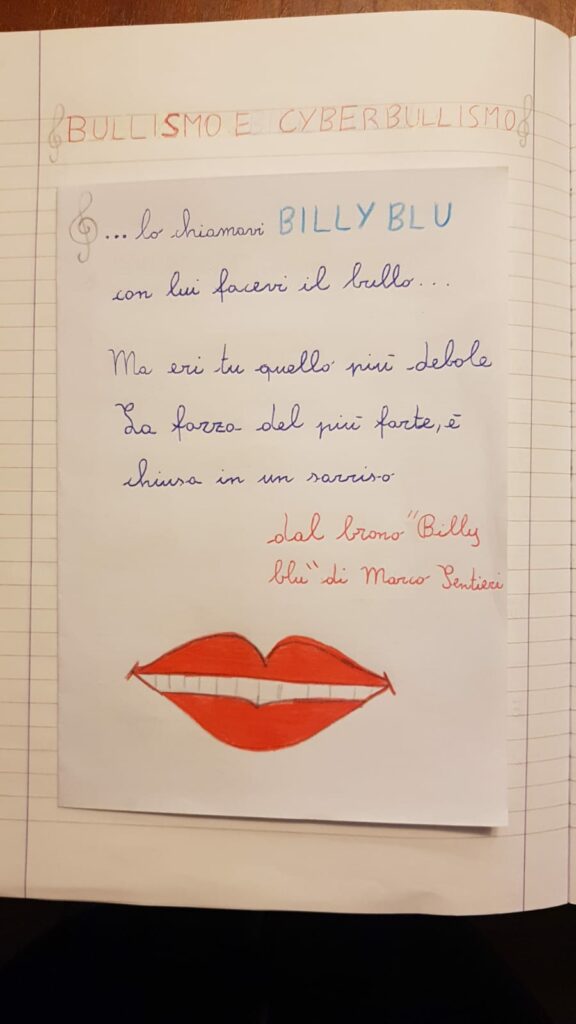 BULLISMO E CYBERBULLISMO
... lo chiamavi BILLY BLU
con lui facevi il bullo...
Ma eri tu quello più debole
La forza del più forte, è
chiusa in un sorriso
dal brono "Billy
blu" di Marco Sentieri